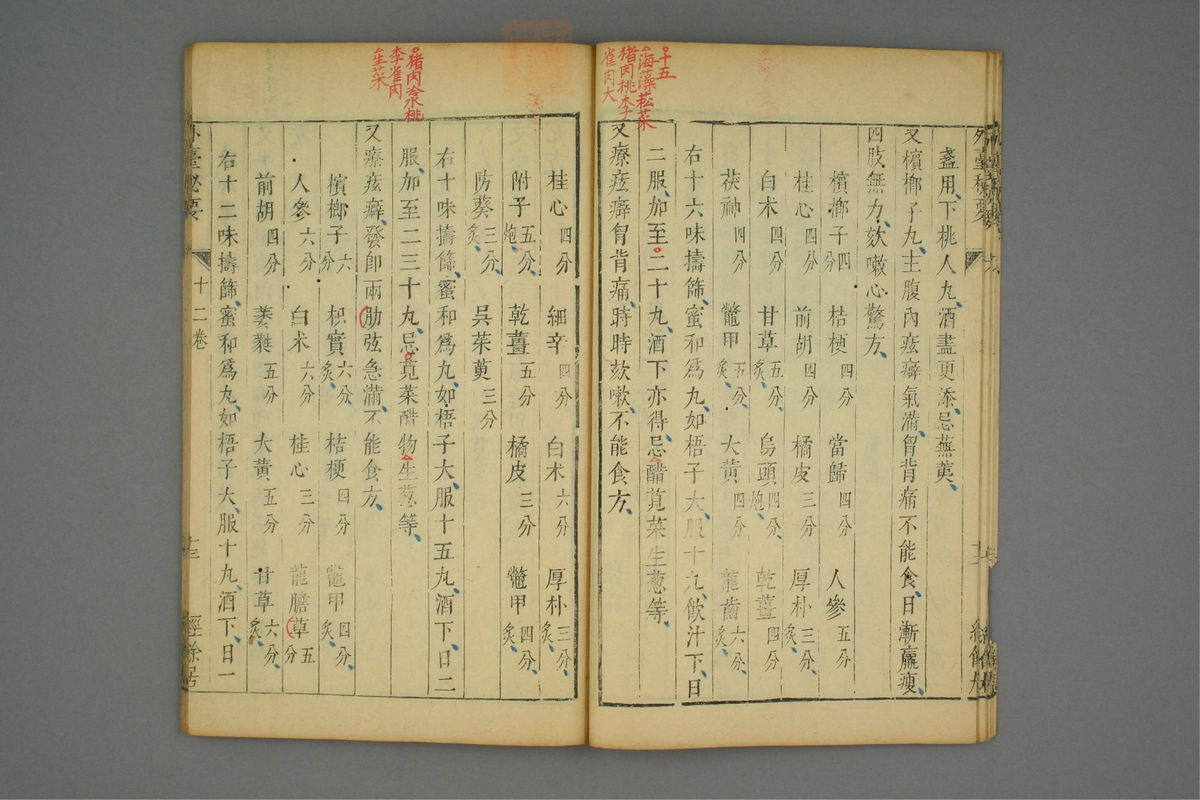 十五
海藻菘菜
猪肉桃李
雀肉大
盞用下桃人丸酒盡更添忌蕪荑
又檳榔子丸主腹內痃癖氣滿胷背痛不能食日漸羸瘦
四肢無力欬嗽心驚方
檳榔子四分 桔梗四分 當歸四分 人參五分
桂心四分 前胡四分 橘皮三分 厚朴三分炙
白朮四分 甘草五分炙 烏頭四分炮 乾薑四分
茯神四分 鼈甲五分炙 大黃四分 龍齒六分炙
右十六味擣篩蜜和爲丸如梧子大服十丸飲汁下日
二服加至二十丸酒下亦得忌醋莧菜生葱等
又療痃癖胷背痛時時欬嗽不能食方
猪肉冷桃
李雀肉
生菜
桂心四分 細辛四分 白朮六分 厚朴三分炙
附子五分炮 乾薑五分 橘皮三分 鼈甲四分炙
防葵三分炙 吳茱萸三分
右十味擣篩蜜和爲丸如梧子大服十五丸酒下日二
服加至二三十丸忌莧菜醋物生葱等
又療痃癖發卽兩肋弦急滿不能食方
檳榔子六分 枳實六分炙 桔梗四分 鼈甲四分炙
人參六分 白朮六分 桂心三分 龍膽草五分
前胡四分 萎蕤五分 大黃五分 甘草六分炙
右十二味擣篩蜜和爲丸如梧子大服十丸酒下日一
外臺秘要 十二卷 十三 經餘居